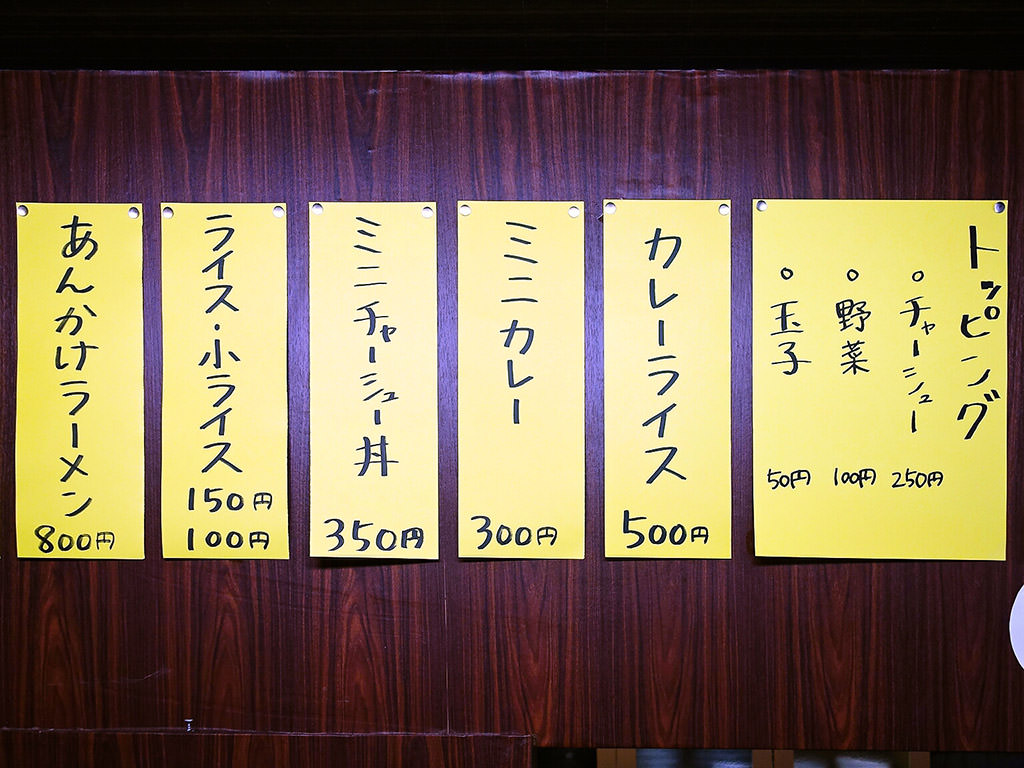 トッピング
○チャーシュー 250円
○野菜 100円
○玉子 50円
カレーライス
500円
ミニカレー
300円
ミニチャーシュー丼
350円
ライス・小ライス
150円
100円
あんかけラーメン
800円